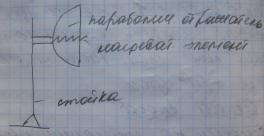 параболич отражатель
нагреват элемент
стойка